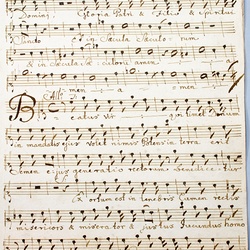 Domini, Gloria Patri & Filio & Spiritui
Sancto & in Sæcula Sæculorum
& in Sæcula Sæculorum amen
Allo
men a men
Beatus vir qui timet Dominum
in mandatis ejus volet nimis Potens in terra erit
Semen ejus generatio rectorum benedicetur
Exortum est in tenebris Lumen rectis
misericors & miserator & justus Jucundus homo